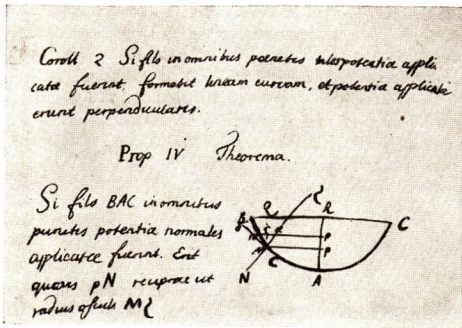 Coroll 2 Si filo in omnibus punctis inter potentia appli
catæ fuerint, formabit lineam curvam, et potentia applicatæ
erunt perpendiculares.
Prop IV Theorema.
Si filo BAC in omnibus
punctis potentiæ normales
applicatæ fuerint. Erit
quævis pN reciproce ut
radius osculi M
B Q R C
P
P
N C A